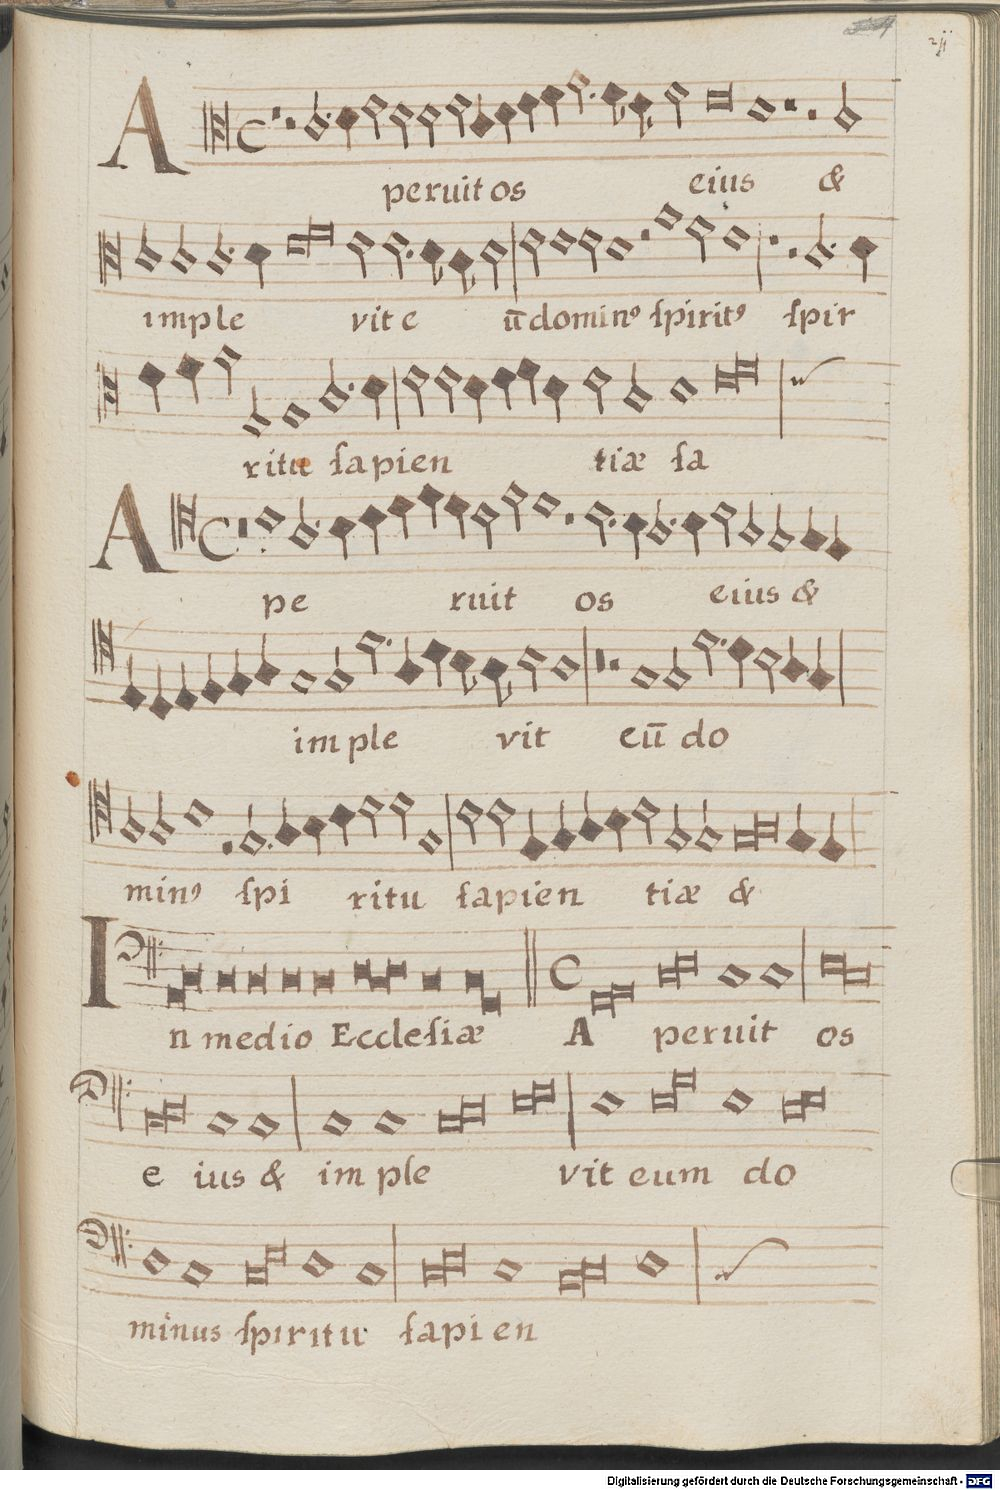 A peruit os eius &
imple vit e ū dominꝰ ſpiritꝰ ſpir
ritu ſapien tiæ ſa
A pe ruit os eius &
imple vit eū do
minꝰ ſpi ritu ſapien tiæ &
In medio Eccleſiæ A peruit os
e ius & im ple vit eum do
minus ſpiritu ſapi en
Digitalisierung gefördert durch die Deutsche Forschungsgemeinschaft - DFG